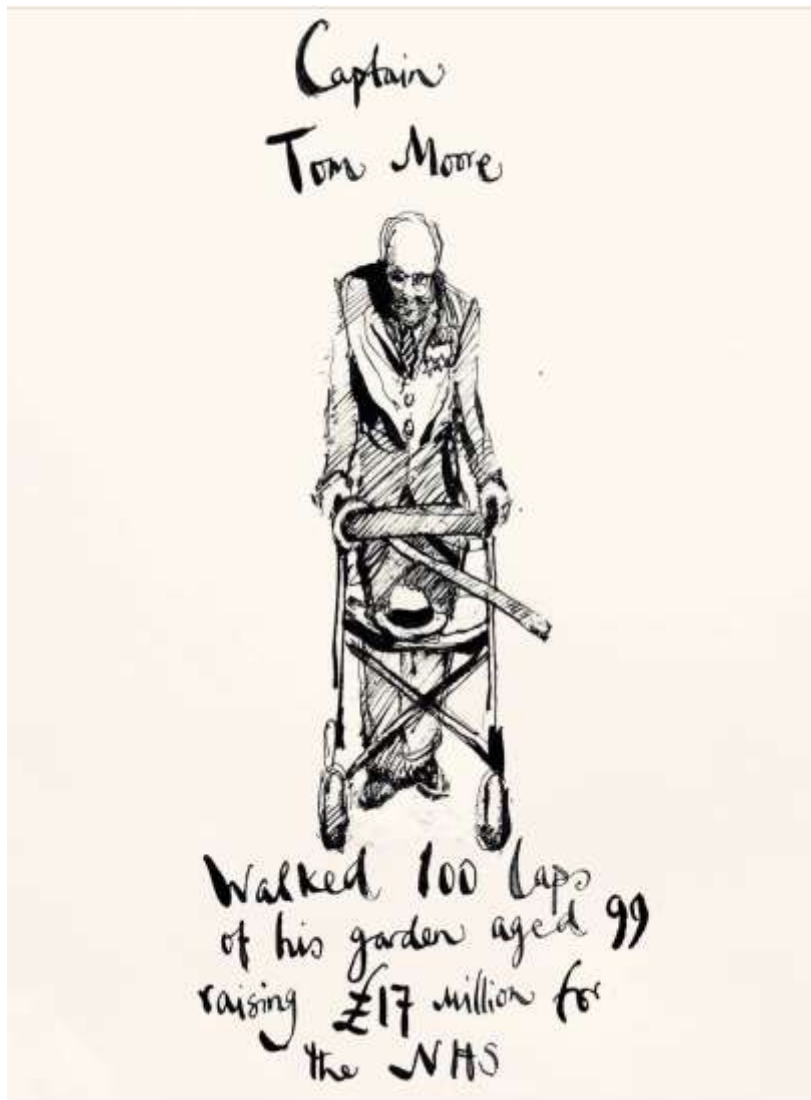 Captain
Tom Moore
Walked 100 laps
of his garden aged 99
raising £17 million for
the NHS